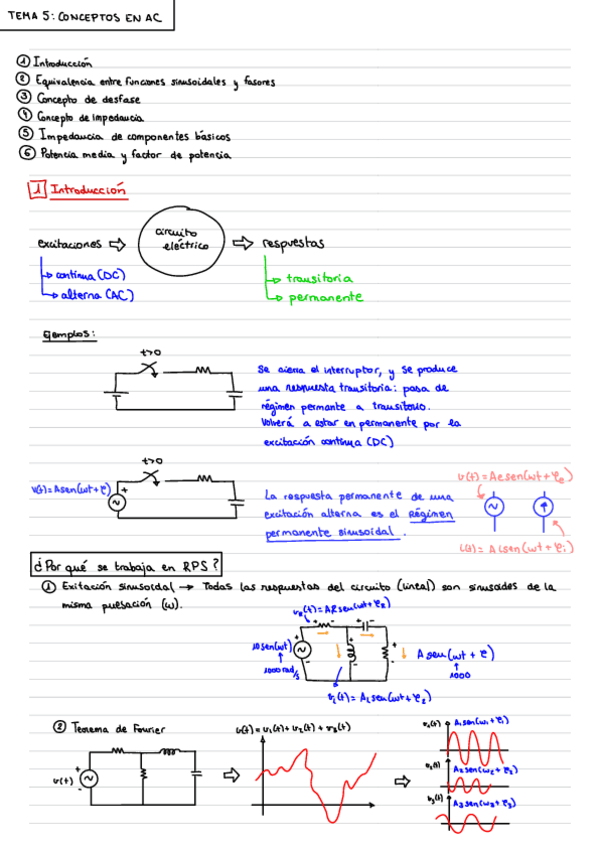 TEMA 5: CONCEPTOS EN AC
① Introducción
② Equivalencia entre funciones sinusoidales y fasores
③ Concepto de desfase
④ Concepto de impedancia
⑤ Impedancia de componentes básicos
⑥ Potencia media y factor de potencia
1 Introducción
excitaciones ⇨ circuito eléctrico ⇨ respuestas
continua (DC)
alterna (AC)
transitoria
permanente
Ejemplos:
t>0
Se cierra el interruptor, y se produce
una respuesta transitoria: pasa de
régimen permante a transitorio.
Volverá a estar en permanente por la
excitación continua (DC)
t>0
v(t)=Asen(ωt+φ)
La respuesta permanente de una
excitación alterna es el Régimen
permanente sinusoidal.
v(t)=Aesen(ωt+φe)
i(t)=Aisen(ωt+φi)
¿Por qué se trabaja en RPS?
① Exitación sinusoidal → Todas las respuestas del circuito (lineal) son sinusoides de la
misma pulsación (ω).
vR(t)=ARsen(ωt+φR)
10sen(ωt)
1000 rad/s
Asen(ωt+φ)
1000
② Teorema de Fourier
v(t)=v₁(t)+v₂(t)+v₃(t)
v(t)
v₁(t)
A₁sen(ω₁+φ₁)
v₂(t)
A₂sen(ω₂+φ₂)
v₃(t)
A₃sen(ω₃+φ₃)